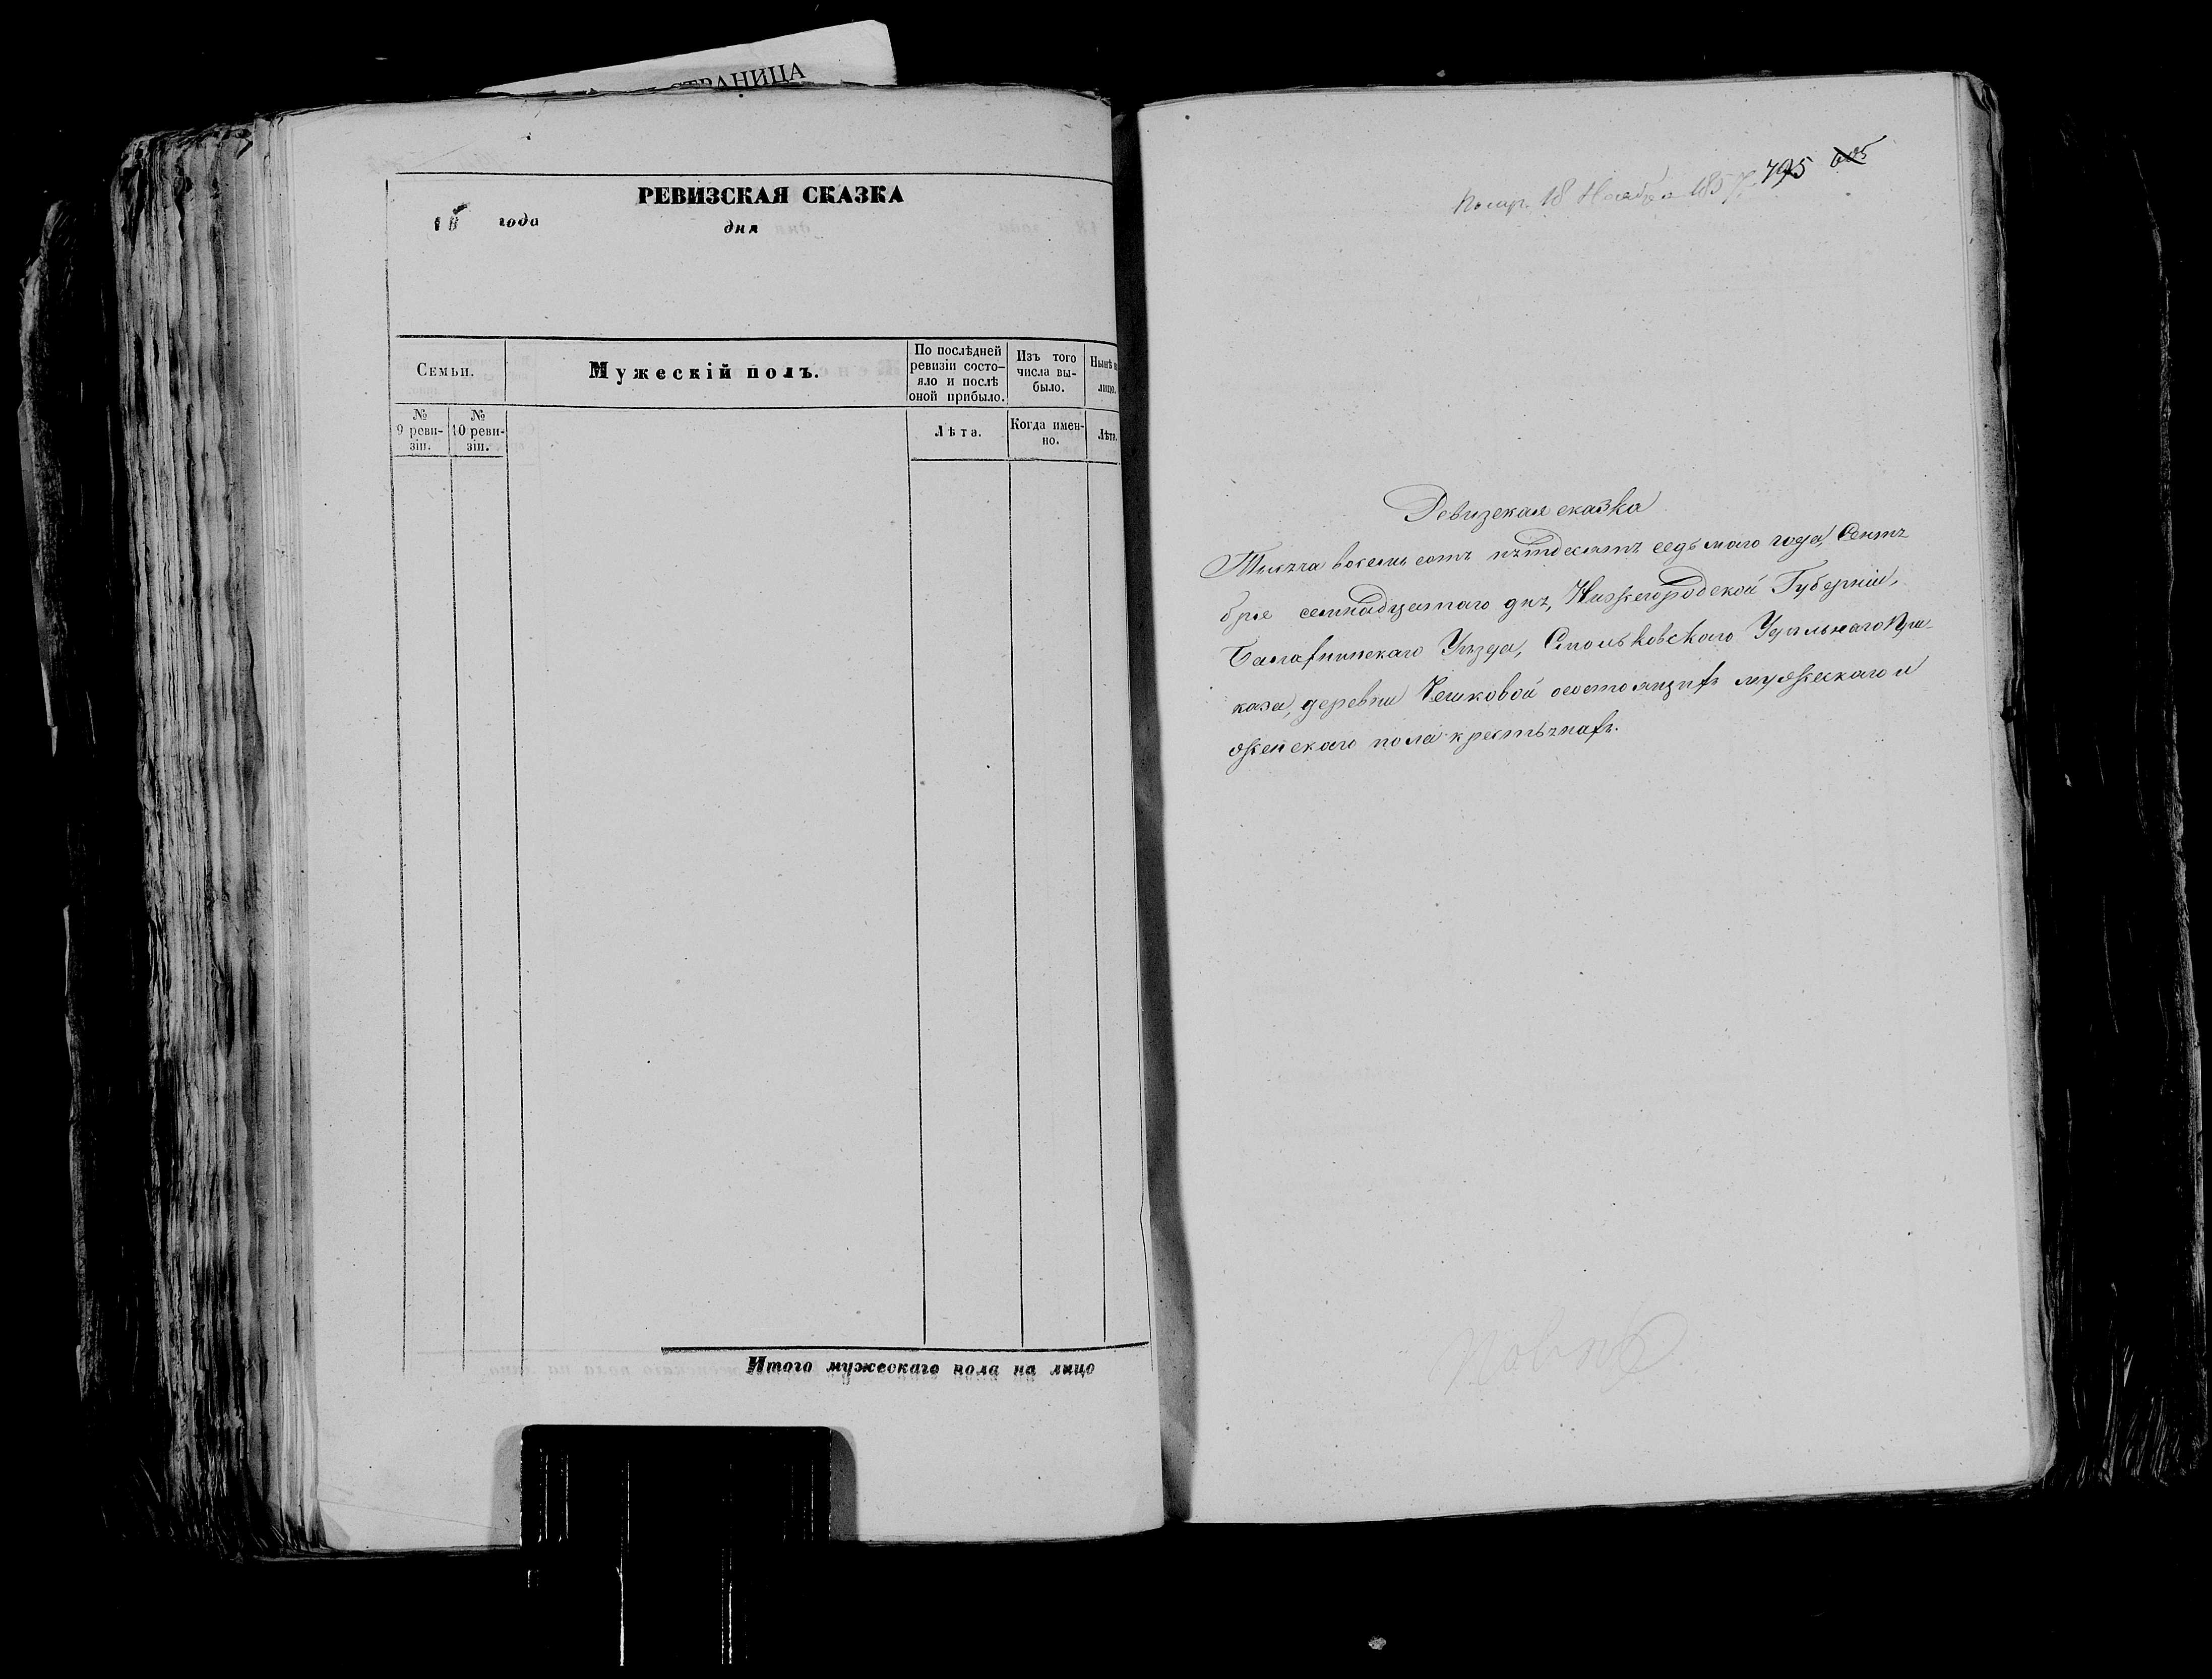 СТРАНИЦА
РЕВИЗСКАЯ СКАЗКА
18 года дня
Семьи.
Мужескій полъ.
По послѣдней
ревизіи состо-
яло и послѣ
оной прибыло.
Изъ того
числа вы-
было.
Нынѣ
лицо.
№
9 реви-
зіи.
№
10 реви-
зіи.
Лѣта.
Когда имен-
но.
Лѣта.
Итого мужескаго пола на лицо
795 605
18 Ноября 1857
Ревизская сказка
Тысяча восемь сотъ пятдесятъ седьмаго года, Сентя
бря семнадцатаго дня, Нижегородской Губерніи,
Балахнинскаго Уѣзда, Удѣльнаго При-
каза, деревни состоящихъ мужескаго и
женскаго пола крестьянахъ.